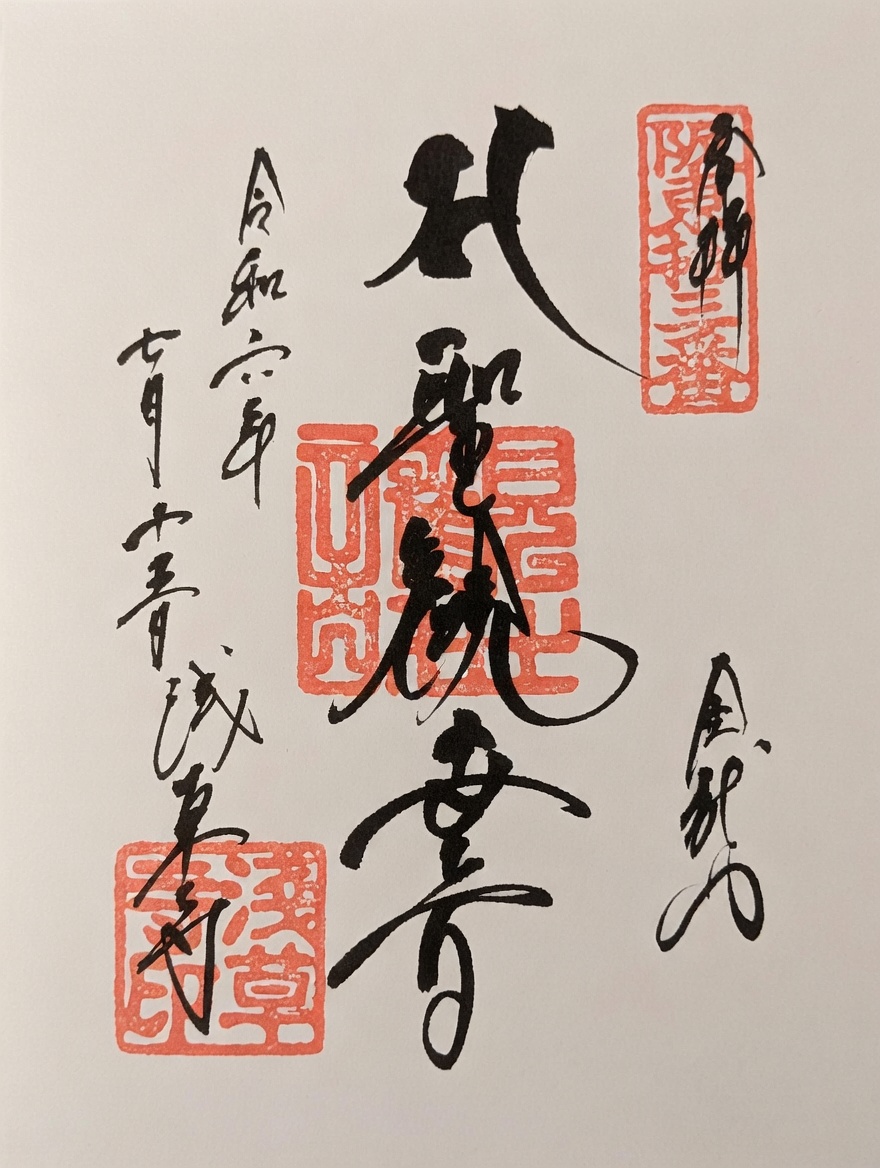 奉拝
阪東拾三番
金龍山
聖観世音
令和六年
七月十五日
浅草寺
浅草寺印